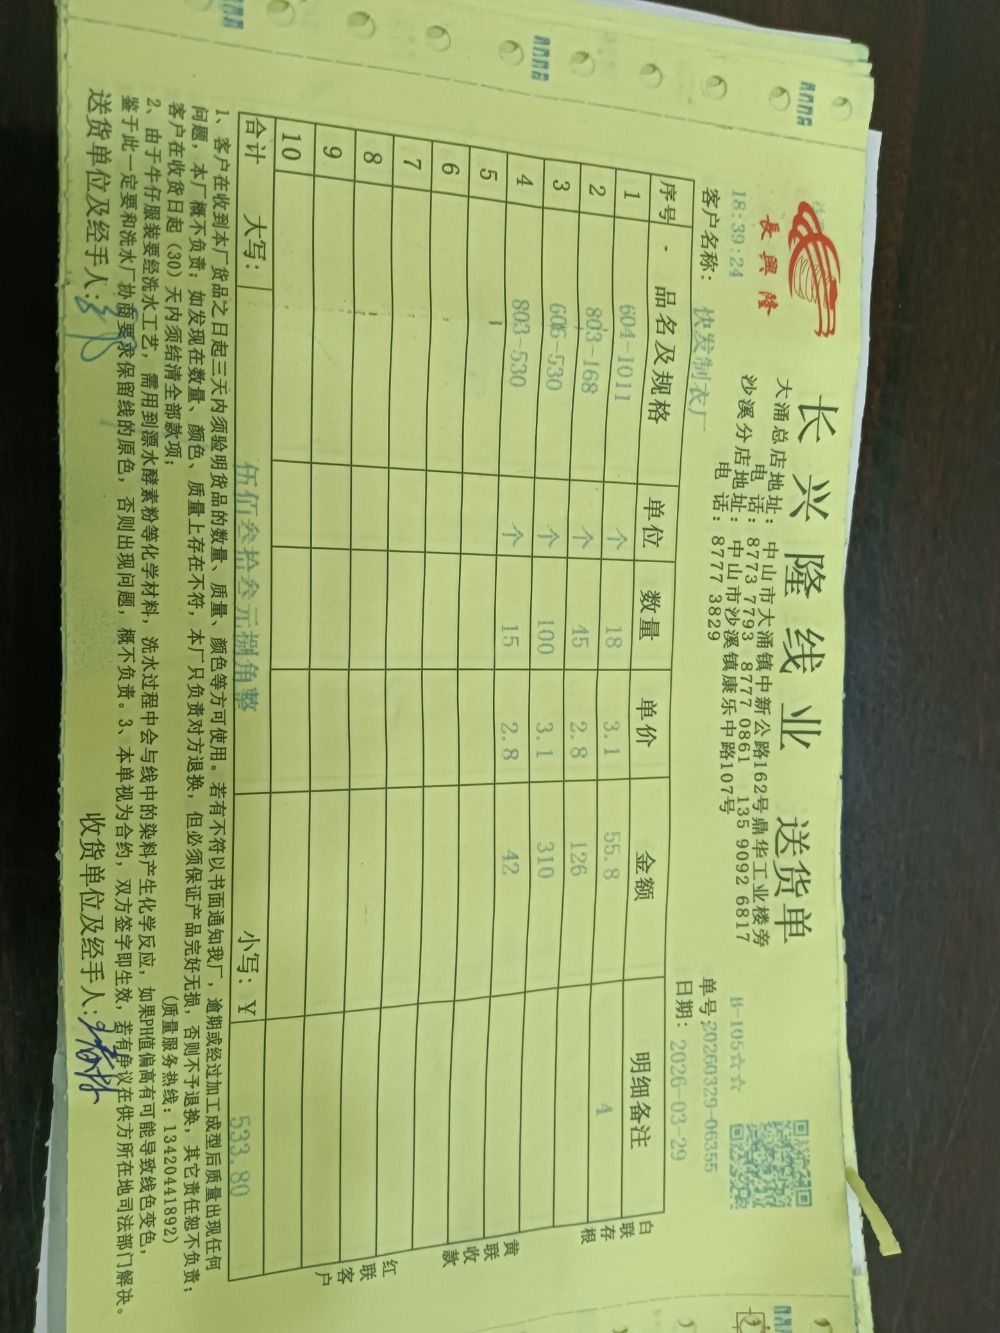 長興隆
长兴隆线业 送货单
大涌总店地址：中山市大涌镇中新公路162号鼎华工业楼旁
电 话：8773 7793 8777 0861 135 9092 6817
沙溪分店地址：中山市沙溪镇康乐中路107号
电 话：8777 3829
18:39:24
B-105☆☆
单号:20260329-06355
客户名称： 快发制衣厂
日期：2026-03-29
序号 品名及规格 单位 数量 单价 金额 明细备注
1 604-1011 个 18 3.1 55.8 4
2 803-168 个 45 2.8 126
3 606-530 个 100 3.1 310
4 803-530 个 15 2.8 42
5
6
7
8
9
10
合计 大写： 伍佰叁拾叁元捌角整 小写：￥ 533.80
白联存根
黄联收款
红联客户
1、客户在收到本厂货品之日起三天内须验明货品的数量、质量、颜色等方可使用。若有不符以书面通知我厂，逾期或经过加工成型后质量出现任何
问题，本厂概不负责；如发现在数量、颜色、质量上存在不符，本厂只负责对方退换，但必须保证产品完好无损，否则不予退换，其它责任恕不负责；
客户在收货日起（30）天内须结清全部款项； （质量服务热线：13420441892）
2、由于牛仔服装要经洗水工艺，需用到漂水酵素粉等化学材料，洗水过程中会与线中的染料产生化学反应，如果PH值偏高有可能导致线色变色，
鉴于此一定要和洗水厂协商要求保留线的原色，否则出现问题，概不负责。3、本单视为合约，双方签字即生效，若有争议在供方所在地司法部门解决。
送货单位及经手人： 收货单位及经手人：